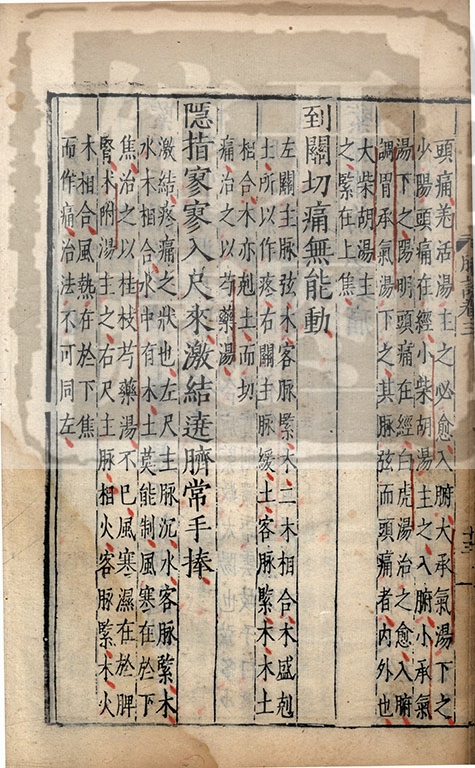 頭痛羌活湯主之必愈入腑大承氣湯下之
少陽頭痛在經小柴胡湯主之入腑小承氣
湯下之陽明頭痛在經白虎湯治之愈入腑
調胃承氣湯下之其脉弦而頭痛者内外也
大柴胡湯主
之緊在上焦
到關切痛無能動
左關主脉弦木客脉緊木二木相合木盛剋
土所以作疼右關主脉緩土客脉緊木木土
相合木亦剋土而切
痛治之以芍藥湯
隱指寥寥入尺來激結遶臍常手捧
激結疼痛之狀也左尺主脉沉水客脉緊木
水木相合水中有木土莫能制風寒在於下
焦治之以桂枝芍藥湯不已風寒濕在於脾
腎术附湯主之右尺主脉相火客脉緊木火
木相合風熱在於下焦
而作痛治法不可同左
十三